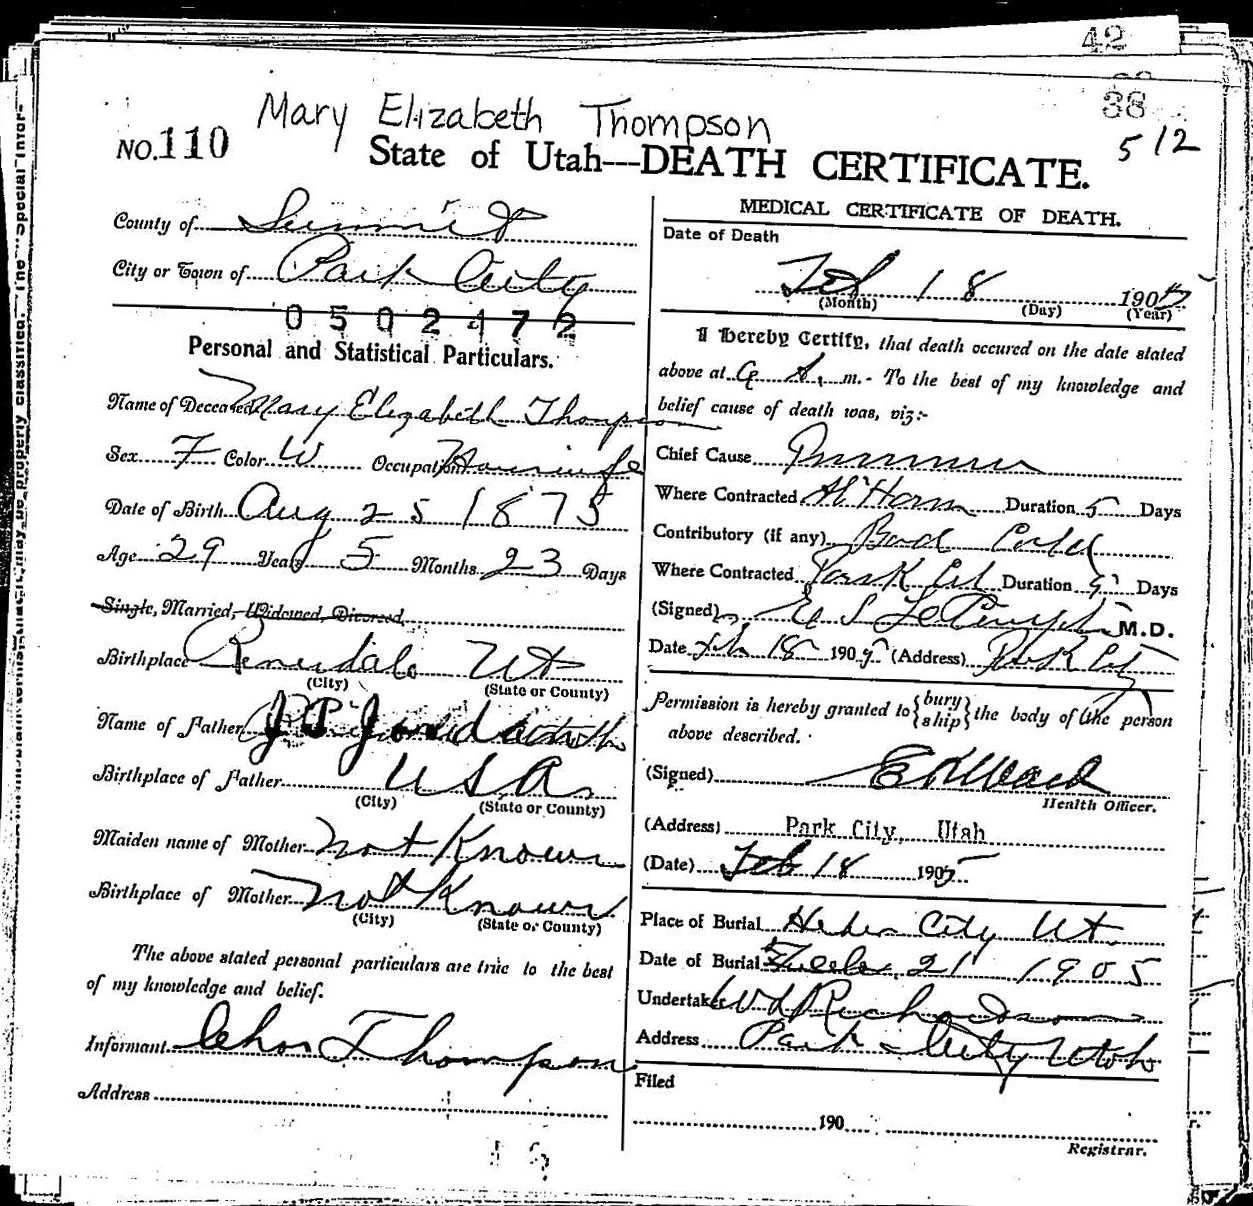 42
38
Mary Elizabeth Thompson
5 12
NO. 110
State of Utah---DEATH CERTIFICATE.
County of Summit
City or Town of Park City
0502472
Personal and Statistical Particulars.
Name of Deceased Mary Elizabeth Thompson
Sex F Color W Occupation Housewife
Date of Birth Aug 25 1875
Age 29 Years 5 Months 23 Days
Single, Married, Widowed, Divorced
Birthplace Ut
(City) (State or County)
Name of Father J P
Birthplace of Father USA
(City) (State or County)
Maiden name of Mother not Known
Birthplace of Mother not Known
(City) (State or County)
The above stated personal particulars are true to the best
of my knowledge and belief.
Informant Thompson
Address
MEDICAL CERTIFICATE OF DEATH.
Date of Death
Feb 18 1905
(Month) (Day) (Year)
I Hereby Certify, that death occured on the date stated
above at m.- To the best of my knowledge and
belief cause of death was, viz:-
Chief Cause
Where Contracted At Home Duration 5 Days
Contributory (if any) Bad Cold
Where Contracted Park Duration 5 Days
(Signed) M.D.
Date Feb 18 1905 (Address) Park City
Permission is hereby granted to {bury
ship} the body of the person
above described.
(Signed) Ward
Health Officer.
(Address) Park City, Utah
(Date) Feb 18 1905
Place of Burial Heber City Ut.
Date of Burial 21 1905
Undertaker Richardson
Address Park City Utah
Filed
190
Registrar.